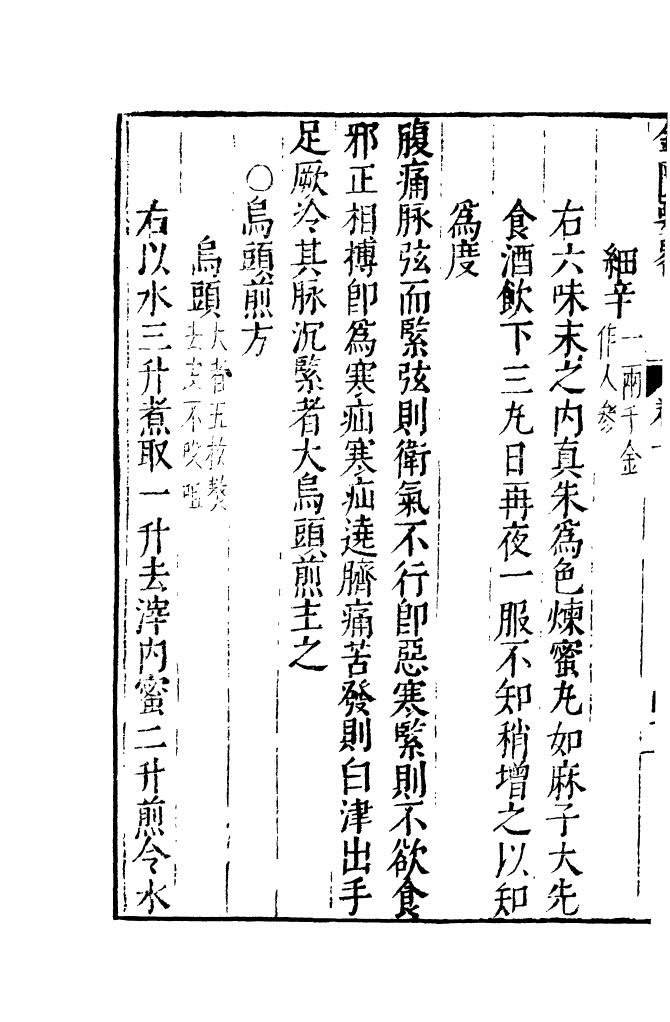 細辛一兩千金作人參
右六味末之內真朱爲色煉蜜丸如麻子大先
食酒飲下三丸日再夜一服不知稍增之以知
爲度
腹痛脉弦而緊弦則衛氣不行卽惡寒緊則不欲食
邪正相搏卽爲寒疝寒疝遶臍痛苦發則白津出手
足厥冷其脉沉緊者大烏頭煎主之
○烏頭煎方
烏頭大者五枚熬去皮不㕮咀
右以水三升煮取一升去滓內蜜二升煎令水